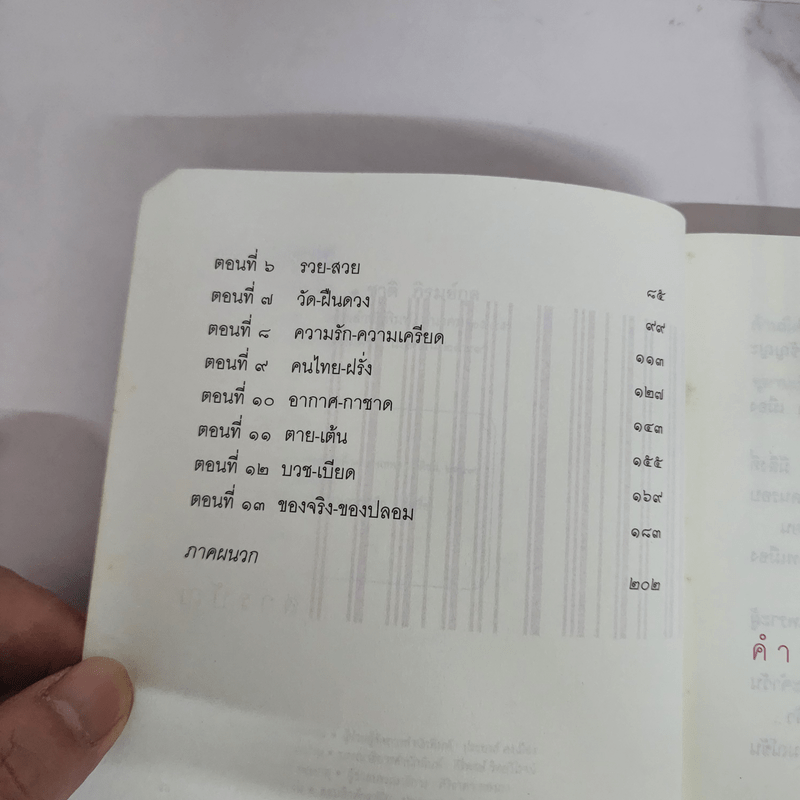 ตอนที่ ๖ รวย-สวย ๘๕
ตอนที่ ๗ วัด-ฝืนดวง ๙๙
ตอนที่ ๘ ความรัก-ความเครียด ๑๑๓
ตอนที่ ๙ คนไทย-ฝรั่ง ๑๒๗
ตอนที่ ๑๐ อากาศ-กาชาด ๑๔๓
ตอนที่ ๑๑ ตาย-เต้น ๑๕๕
ตอนที่ ๑๒ บวช-เบียด ๑๖๙
ตอนที่ ๑๓ ของจริง-ของปลอม ๑๘๓
ภาคผนวก ๒๐๒
คำ